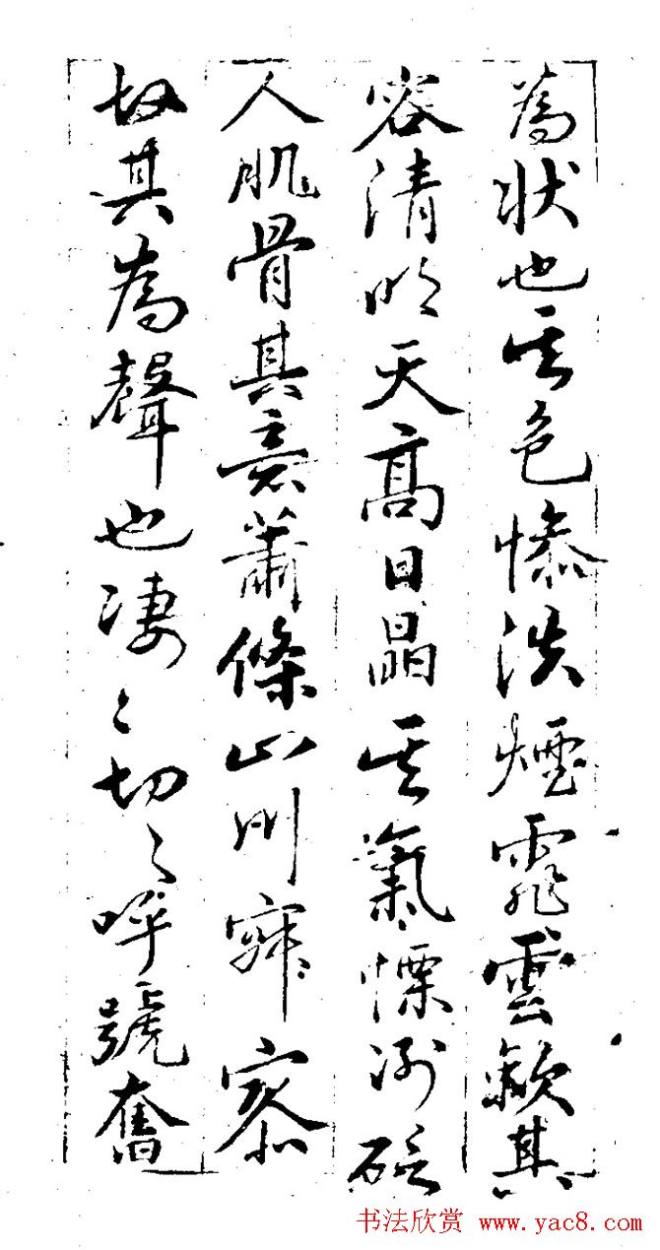 為狀也其色慘淡煙霏雲歛其
容清明天高日晶其氣慄冽砭
人肌骨其意蕭條山川寂寥
故其為聲也淒〻切〻呼號奮
书法欣赏 www.yac8.com